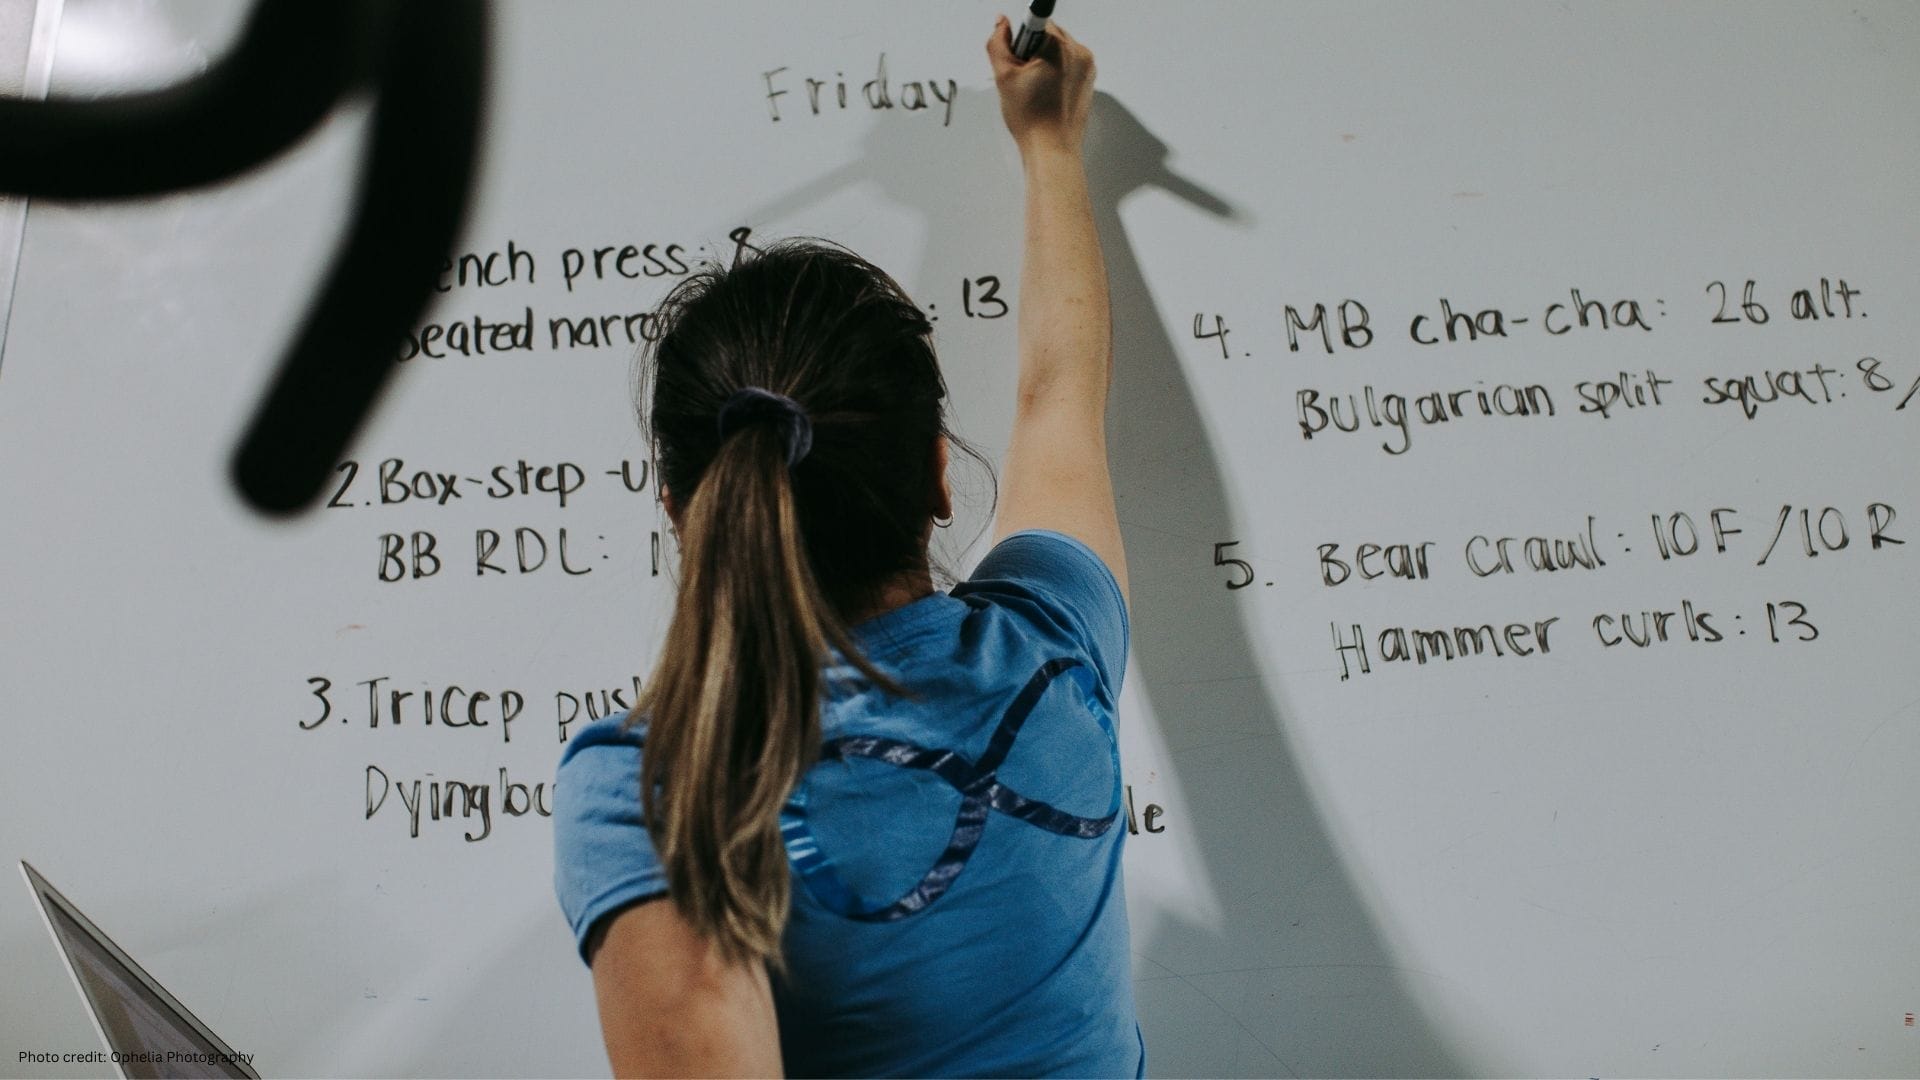 Friday
ench press: 8
seated narro : 13
2. Box-step-u
BB RDL: 1
3. Tricep push
Dying bu le
4. MB cha-cha: 26 alt.
Bulgarian split squat: 8/
5. Bear crawl: 10 F / 10 R
Hammer curls: 13
Photo credit: Ophelia Photography